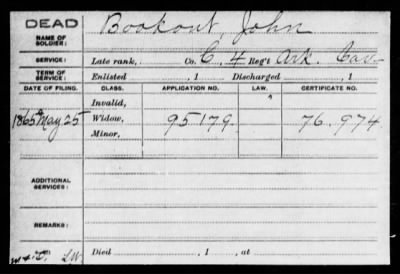 DEAD
NAME OF SOLDIER: Bookout John
SERVICE: Late rank, Co. C, 4 Reg't Ark. Cav
TERM OF SERVICE: Enlisted , 1 Discharged , 1
DATE OF FILING. CLASS. APPLICATION NO. LAW. CERTIFICATE NO.
Invalid,
1865 May 25 Widow, 95179 76.974
Minor,
ADDITIONAL SERVICES:
REMARKS:
Died , 1 , at